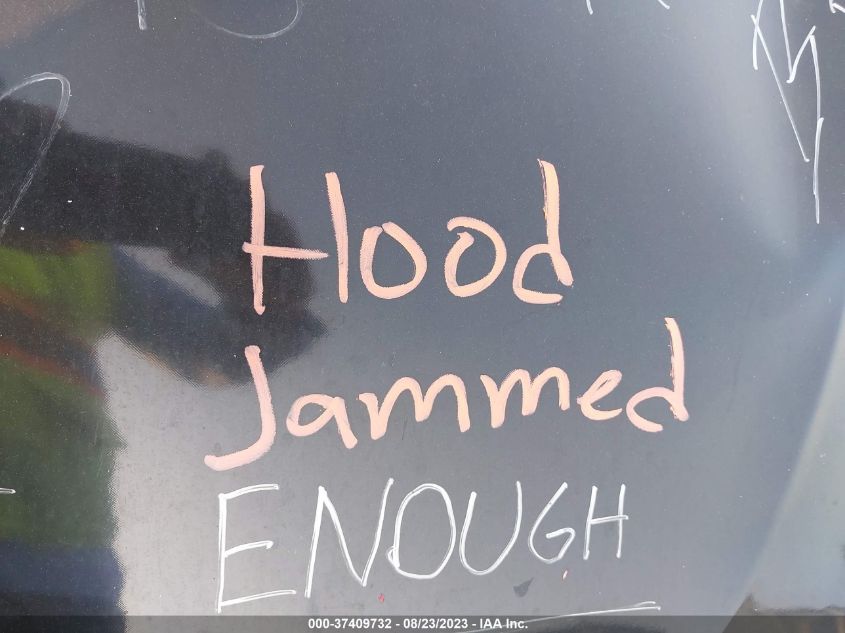 Hood
Jammed
ENOUGH
000-37409732 - 08/23/2023 - IAA Inc.